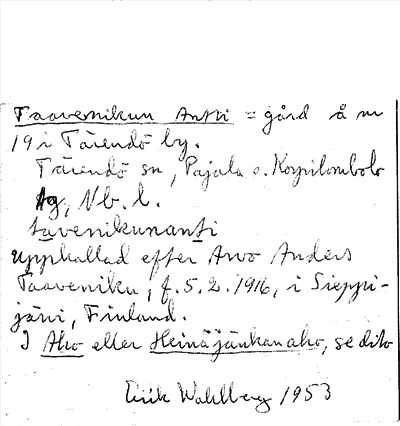 Taavenikun Antti = gård å nr
19 i Tärendö by.
Tärendö sn, Pajala o. Korpilombolo
tg, Nb. l.
tavenikunanti
Uppkallad efter Arvo Anders
Taaveniku, f. 5.2.1916, i Sieppi-
järvi, Finland.
I Aho eller Heinäjänkanaho, se dito
Erik Wahlberg 1953